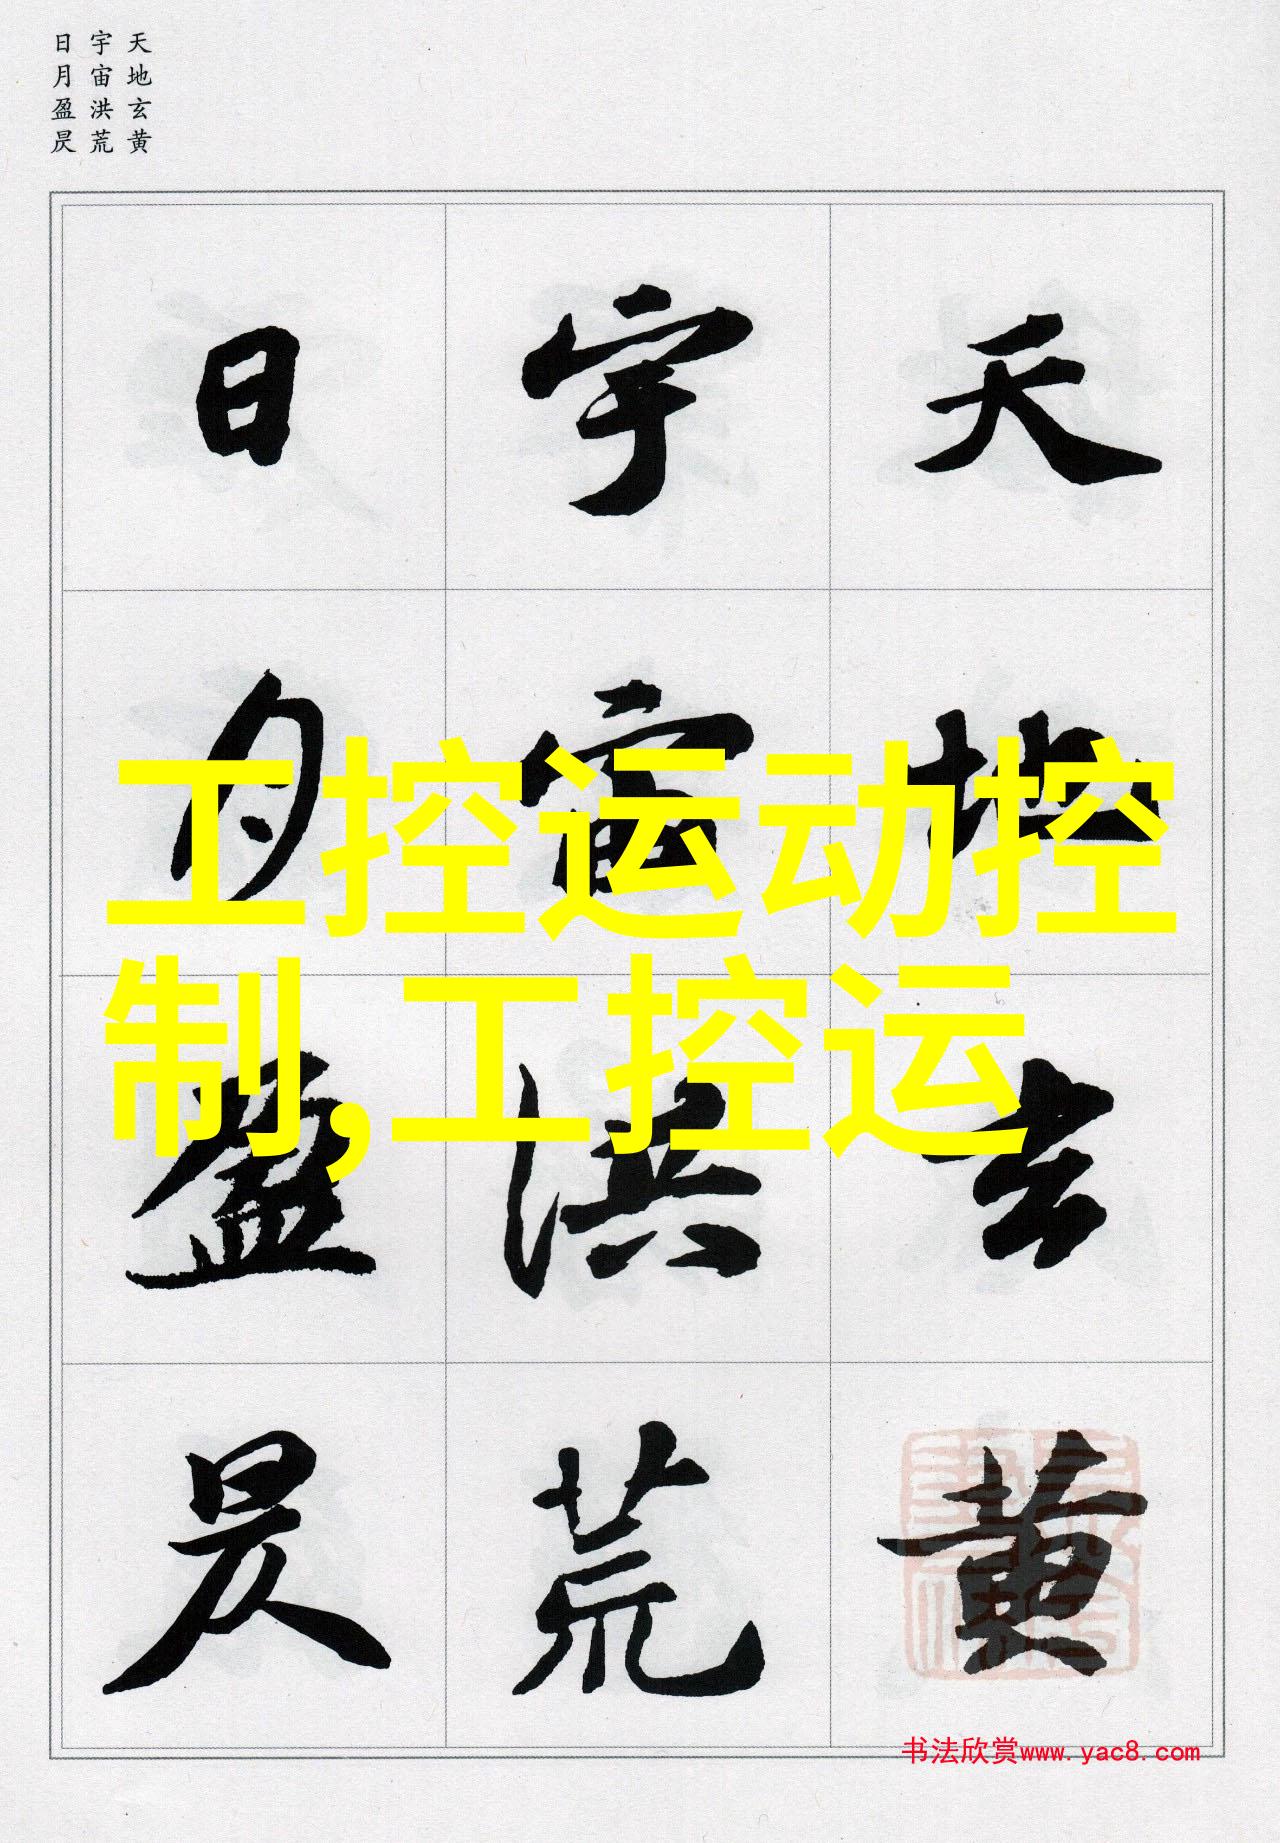 天地玄黄
宇宙洪荒
日月盈昃
天地玄黄
宇宙洪荒
日月盈昃
工控运动控
制,工控运
书法欣赏www.yac8.com